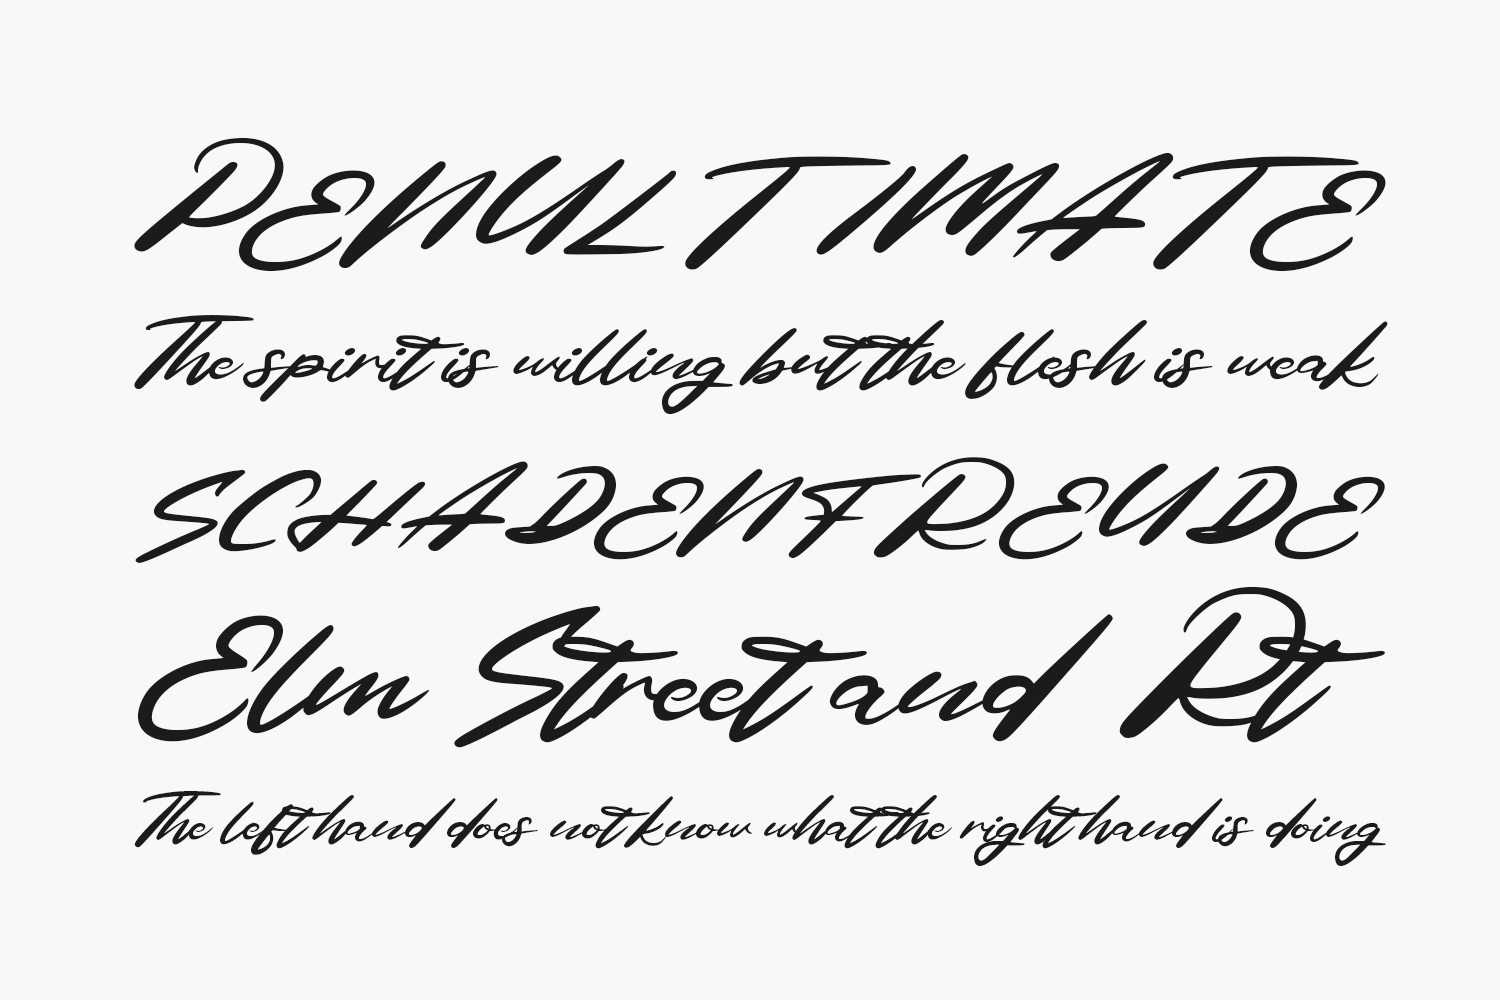 PENULTIMATE
The spirit is willing but the flesh is weak
SCHADENFREUDE
Elm Street and Rt
The left hand does not know what the right hand is doing